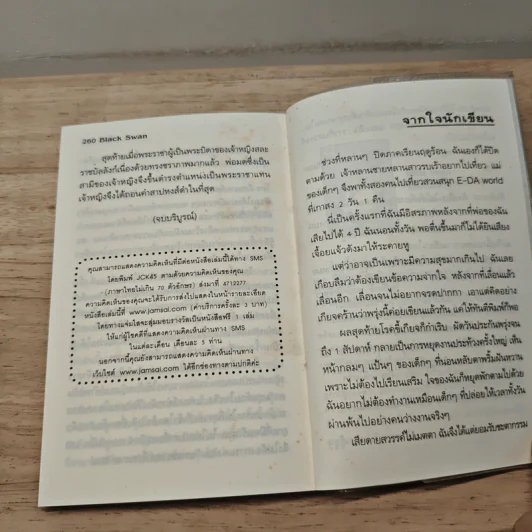 260 Black Swan
สุดท้ายเมื่อพระราชาผู้เป็นพระบิดาของเจ้าหญิงสละ
ราชบัลลังก์เนื่องด้วยทรงชราภาพมากแล้ว พ่อมดซึ่งเป็น
สามีของเจ้าหญิงจึงขึ้นดำรงตำแหน่งเป็นพระราชาแทน
เจ้าหญิงจึงได้ถอนคำสาปหงส์ดำในที่สุด
(จบบริบูรณ์)
คุณสามารถแสดงความคิดเห็นที่มีต่อหนังสือเล่มนี้ได้ทาง SMS
โดยพิมพ์ JCK45 ตามด้วยความคิดเห็นของคุณ
(ภาษาไทยไม่เกิน 70 ตัวอักษร) ส่งมาที่ 4712277
ความคิดเห็นของคุณจะได้รับการส่งไปแสดงในหน้ารายละเอียด
หนังสือเล่มนี้ที่ www.jamsai.com (ค่าบริการครั้งละ 3 บาท)
โดยทางแจ่มใสจะสุ่มมอบรางวัลเป็นหนังสือฟรี 1 เล่ม
ให้แก่ผู้โชคดีที่แสดงความคิดเห็นผ่านทาง SMS
ในแต่ละเดือน เดือนละ 5 ท่าน
นอกจากนี้คุณยังสามารถแสดงความคิดเห็นผ่านทาง
เว็บไซต์ www.jamsai.com ได้อีกช่องทางตามปกติค่ะ
จากใจนักเขียน
ช่วงที่หลานๆ ปิดภาคเรียนฤดูร้อน ฉันเองก็ได้ปิด
ตามด้วย เจ้าหลานชายหลานสาวรบเร้าอยากไปเที่ยว แม่
ของเด็กๆ จึงพาทั้งสองคนไปเที่ยวสวนสนุก E-DA world
ที่เกาสง 2 วัน 1 คืน
นี่เป็นครั้งแรกที่ฉันมีอิสรภาพหลังจากที่พ่อของฉัน
เสียไปได้ 4 ปี ฉันนอนทั้งวัน พอตื่นขึ้นมาก็ไม่ได้ยินเสียง
เจื้อยแจ้วดังมาให้ระคายหู
แต่ว่าอาจเป็นเพราะมีความสุขมากเกินไป ฉันเลย
เกือบลืมว่าต้องเขียนข้อความจากใจ หลังจากที่เลื่อนแล้ว
เลื่อนอีก เลื่อนจนไม่อยากจรดปากกา เอาแต่คิดอย่าง
เกียจคร้านว่าพรุ่งนี้ค่อยเขียนแล้วกัน แค่ให้ทันตีพิมพ์ก็พอ
ผลสุดท้ายโรคขี้เกียจก็กำเริบ ผัดวันประกันพรุ่งจน
ถึง 1 สัปดาห์ กลายเป็นการหยุดงานประท้วงครั้งใหญ่ เห็น
หน้ากลมๆ แป้นๆ ของเด็กๆ ที่นอนหลับตาพริ้มฝันหวาน
เพราะไม่ต้องไปเรียนเสริม ใจของฉันก็หยุดพักตามไปด้วย
ฉันอยากไม่ต้องทำงานเหมือนเด็กๆ ที่ปล่อยให้เวลาทั้งวัน
ผ่านพ้นไปอย่างคนว่างงานจริงๆ
เสียดายสวรรค์ไม่เมตตา ฉันจึงได้แต่ยอมรับชะตากรรม